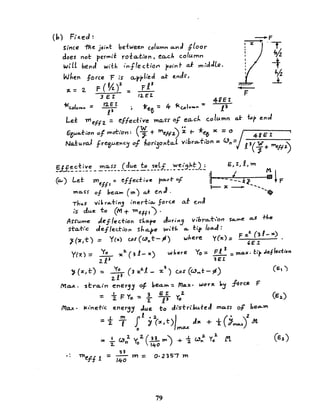 (b) Fixed:
Since the joint between column and floor
does not permit rotation, each column
will bend with inflection point at middle.
When force F is applied at ends,
x = 2 F(l/2)³ / 3EI = Fl³ / 12EI
k column = 12EI / l³ ; k eq = 4 k column = 48EI / l³
F
x
l/2
l/2
F
Let m eff2 = effective mass of each column at top end
Equation of motion: (W/g + m eff2) ẍ + k eq x = 0
Natural frequency of horizontal vibration = ωn = √(48EI / l³(W/g + m eff2))
Effective mass (due to self weight):
(a) Let m eff1 = effective part of
mass of beam (m) at end.
Thus vibrating inertia force at end
is due to (M + m eff1).
E, I, l, m
M
F
x
Assume deflection shape during vibration same as the
static deflection shape with a tip load:
y(x,t) = Y(x) cos(ωn t − φ) where Y(x) = F x² (3l − x) / 6EI
Y(x) = Y₀ / 2l³ x² (3l − x) where Y₀ = Fl³ / 3EI = max. tip deflection
y(x,t) = Y₀ / 2l³ (3x²l − x³) cos(ωn t − φ) (E₁)
Max. strain energy of beam = Max. work by force F
= ½ F Y₀ = 3/2 EI/l³ Y₀² (E₂)
Max. kinetic energy due to distributed mass of beam
= ½ m/l ∫₀ˡ ẏ²(x,t)|max dx + ½ (ẏmax)² M
= ½ ωn² Y₀² (33/140 m) + ½ ωn² Y₀² M (E₃)
∴ m eff1 = 33/140 m = 0.2357 m
79